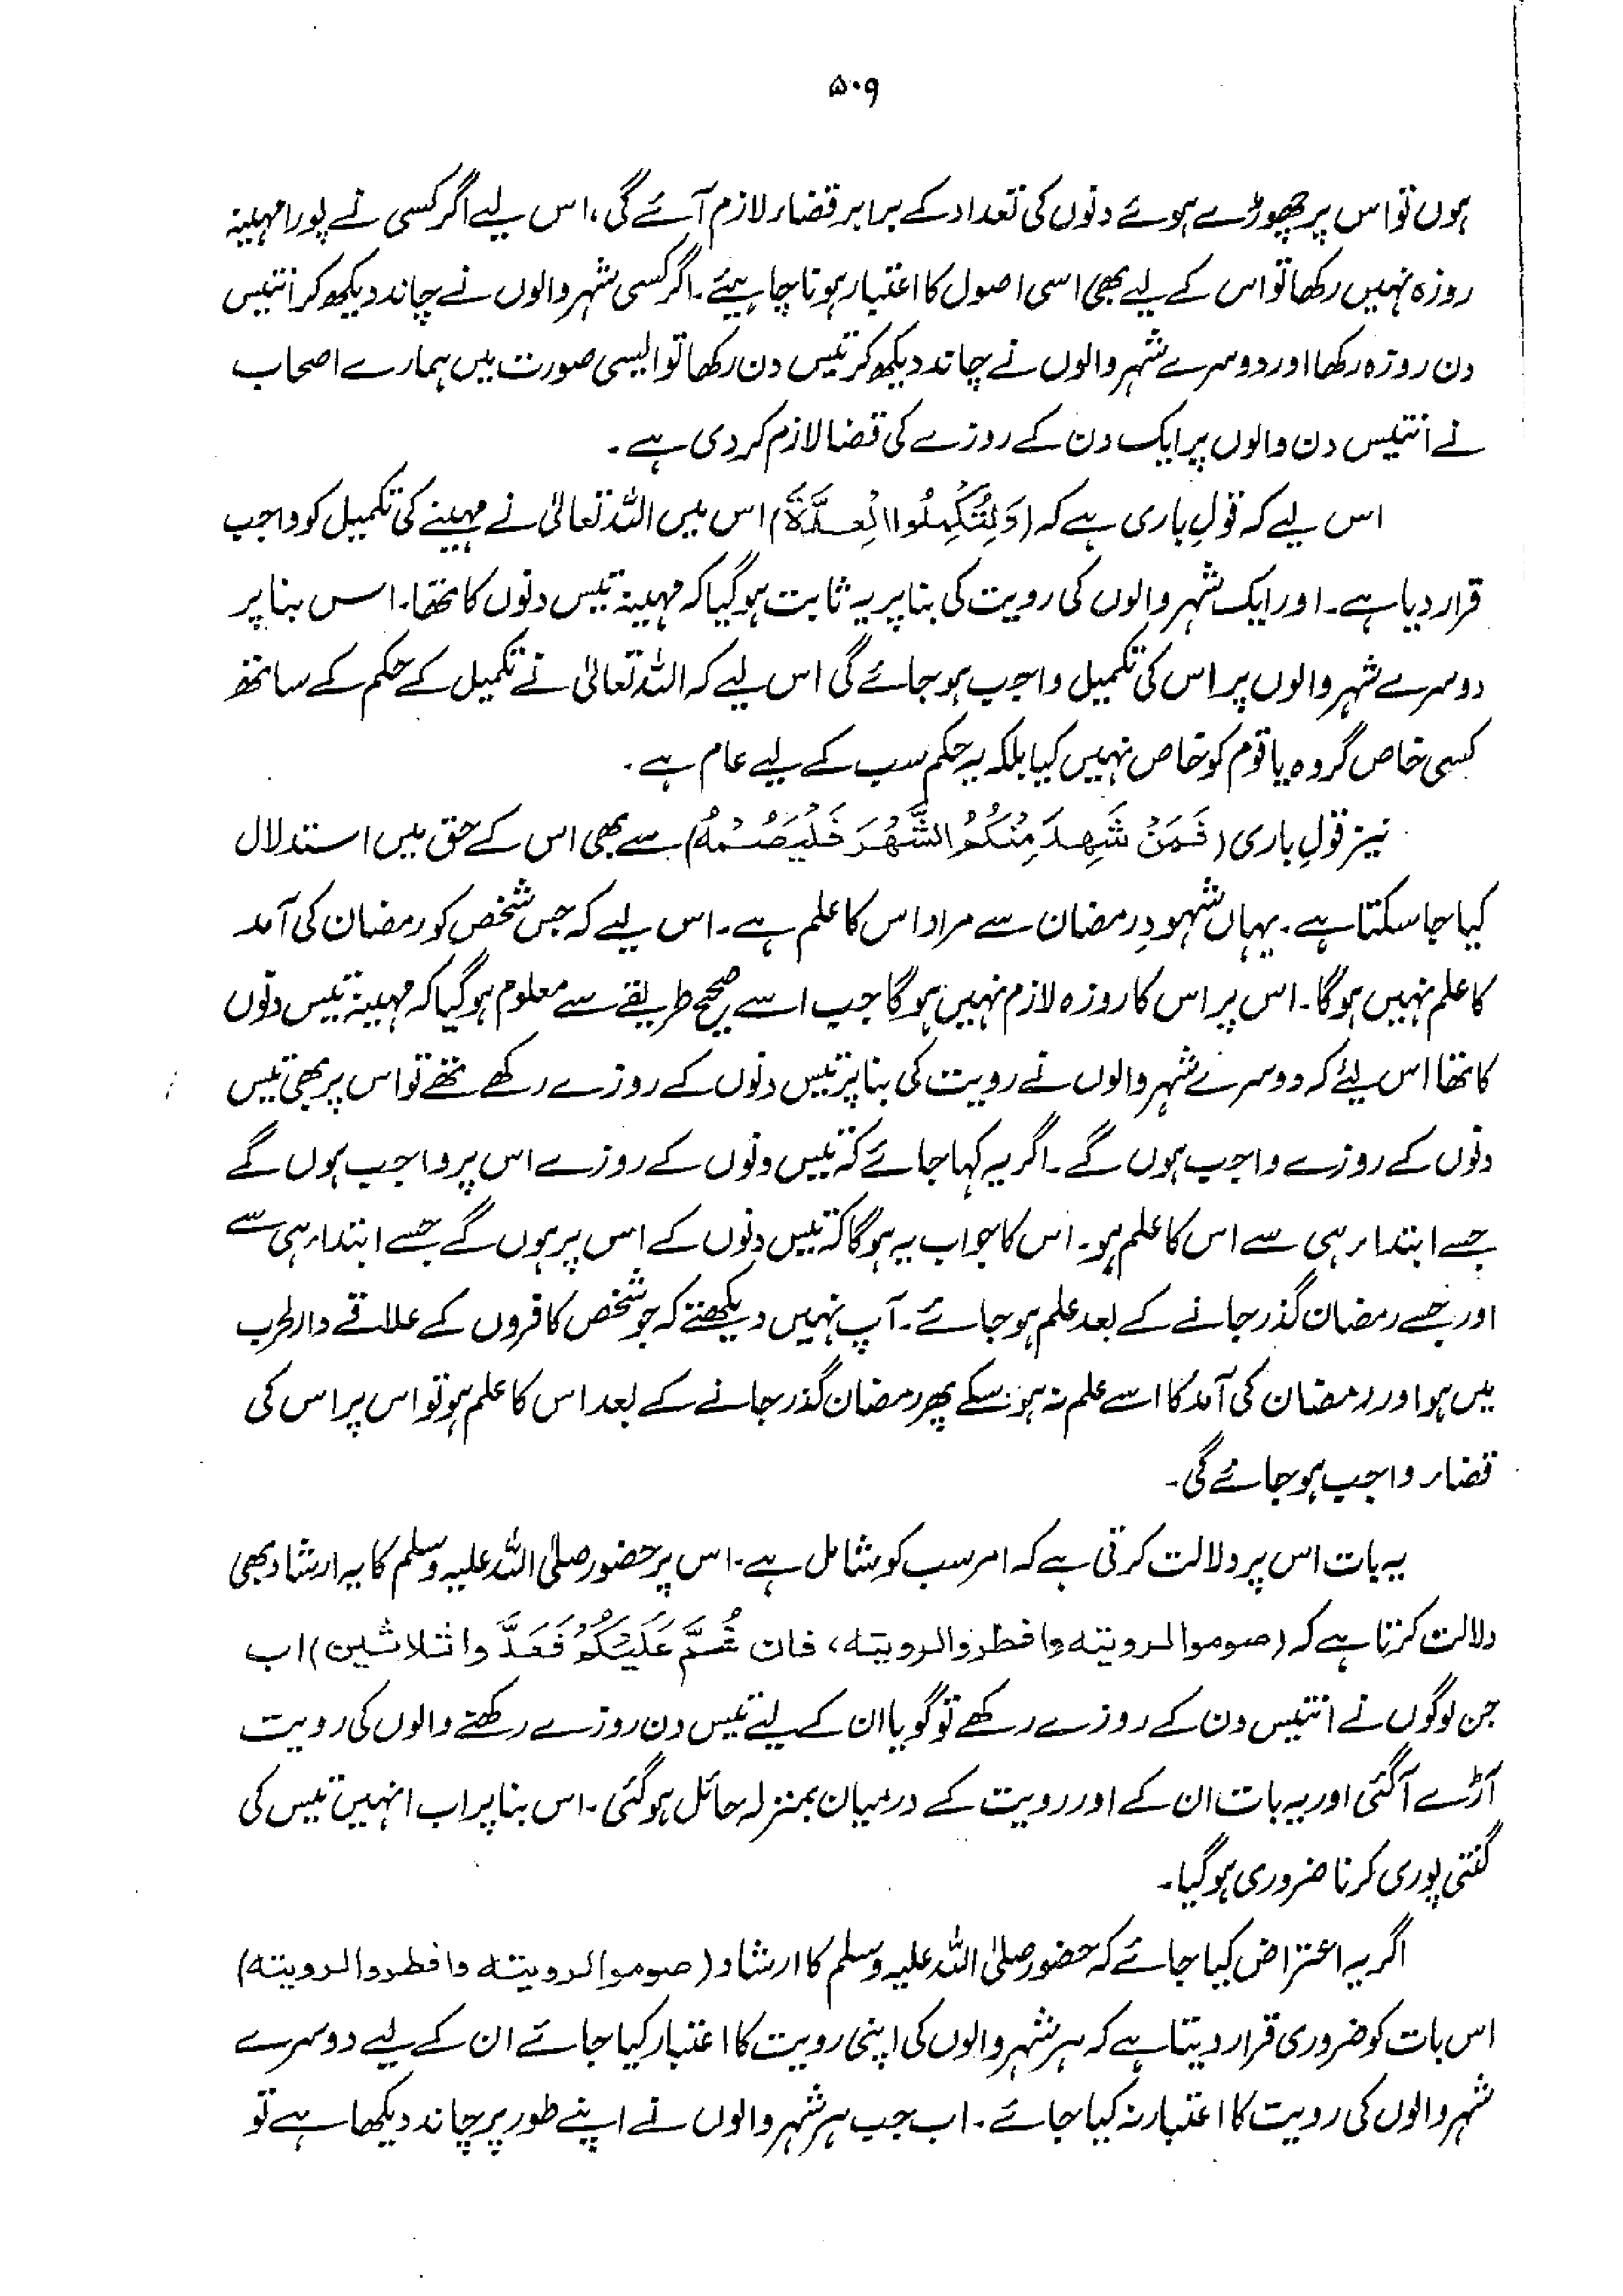 ۵۰۹
ہوں تو اس پر چھوڑے ہوئے دنوں کی تعداد کے برابر قضاء لازم آئے گی، اس لیے اگر کسی نے پورا مہینہ
روزہ نہیں رکھا تو اس کے لیے بھی اسی اصول کا اعتبار ہونا چاہیئے۔ اگر کسی شہر والوں نے چاند دیکھ کر انتیس
دن روزہ رکھا اور دوسرے شہر والوں نے چاند دیکھ کر تیس دن رکھا تو ایسی صورت میں ہمارے اصحاب
نے انتیس دن والوں پر ایک دن کے روزے کی قضا لازم کر دی ہے۔
اس لیے کہ قولِ باری ہے کہ (وَلِتُكْمِلُوا الْعِدَّةَ) اس میں اللہ تعالیٰ نے مہینے کی تکمیل کو واجب
قرار دیا ہے۔ اور ایک شہر والوں کی رویت کی بنا پر یہ ثابت ہو گیا کہ مہینہ تیس دنوں کا تھا۔ اس بنا پر
دوسرے شہر والوں پر اس کی تکمیل واجب ہو جائے گی اس لیے کہ اللہ تعالیٰ نے تکمیل کے حکم کے ساتھ
کسی خاص گروہ یا قوم کو خاص نہیں کیا بلکہ یہ حکم سب کے لیے عام ہے۔
نیز قولِ باری (فَمَنْ شَهِدَ مِنْكُمُ الشَّهْرَ فَلْيَصُمْهُ) سے بھی اس کے حق میں استدلال
کیا جا سکتا ہے۔ یہاں شہودِ رمضان سے مراد اس کا علم ہے۔ اس لیے کہ جس شخص کو رمضان کی آمد
کا علم نہیں ہو گا۔ اس پر اس کا روزہ لازم نہیں ہو گا جب اسے صحیح طریقے سے معلوم ہو گیا کہ مہینہ تیس دنوں
کا تھا اس لیئے کہ دوسرے شہر والوں نے رویت کی بنا پر تیس دنوں کے روزے رکھے تھے تو اس پر بھی تیس
دنوں کے روزے واجب ہوں گے۔ اگر یہ کہا جائے کہ تیس دنوں کے روزے اس پر واجب ہوں گے
جسے ابتداء ہی سے اس کا علم ہو۔ اس کا جواب یہ ہو گا کہ تیس دنوں کے اس پر ہوں گے جسے ابتداء ہی سے
اور جسے رمضان گذر جانے کے بعد علم ہو جائے۔ آپ نہیں دیکھتے کہ جو شخص کافروں کے علاقے دار الحرب
میں ہو اور رمضان کی آمد کا اسے علم نہ ہو سکے پھر رمضان گذر جانے کے بعد اس کا علم ہو تو اس پر اس کی
قضاء واجب ہو جائے گی۔
یہ بات اس پر دلالت کرتی ہے کہ امر سب کو شامل ہے۔ اس پر حضور صلی اللہ علیہ وسلم کا یہ ارشاد بھی
دلالت کرتا ہے کہ (صوموا لرویته وافطروا لرویته، فان غُمَّ عَلَيْكُمْ فَعَدُّوا ثلاثین) اب
جن لوگوں نے انتیس دن کے روزے رکھے تو گویا ان کے لیے تیس دن روزے رکھنے والوں کی رویت
آڑے آ گئی اور یہ بات ان کے اور رویت کے درمیان بمنزلہ حائل ہو گئی۔ اس بنا پر اب انہیں تیس کی
گنتی پوری کرنا ضروری ہو گیا۔
اگر یہ اعتراض کیا جائے کہ حضور صلی اللہ علیہ وسلم کا ارشاد (صوموا لرویته وافطروا لرویته)
اس بات کو ضروری قرار دیتا ہے کہ ہر شہر والوں کی اپنی رویت کا اعتبار کیا جائے ان کے لیے دوسرے
شہر والوں کی رویت کا اعتبار نہ کیا جائے۔ اب جب ہر شہر والوں نے اپنے طور پر چاند دیکھا ہے تو